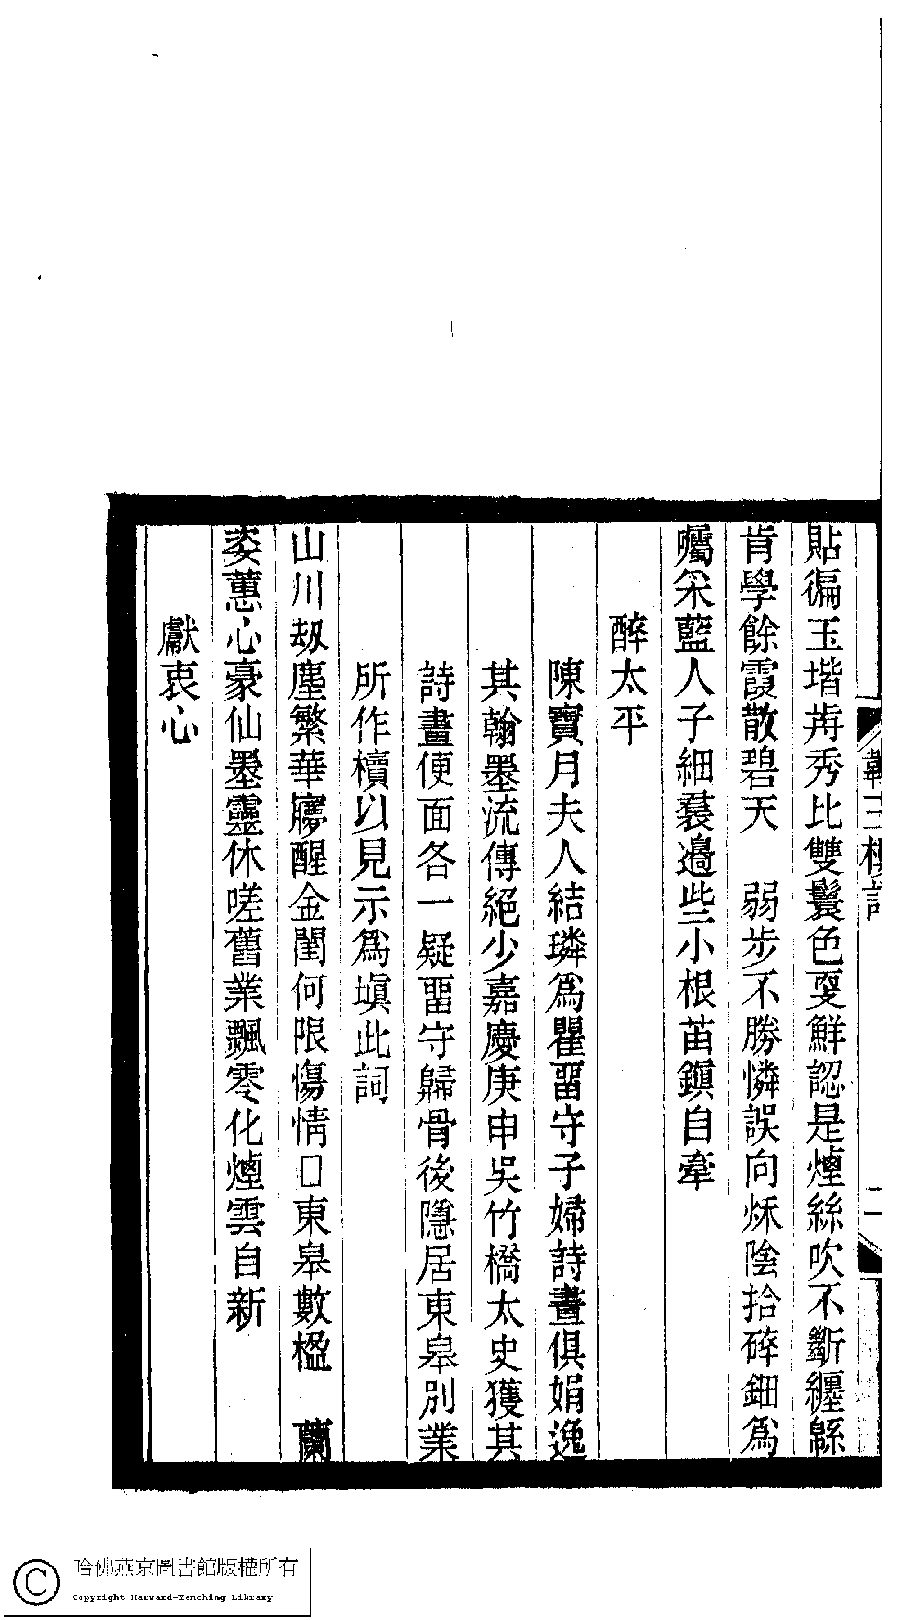 貼徧玉堦歬秀比雙鬟色更鮮認是煙絲吹不斷纏緜
肯學餘霞散碧天　弱步不勝憐誤向烁陰拾碎鈿爲
囑采藍人子細蓑邉些小根苗鎭自牽
醉太平
陳寶月夫人結璘爲瞿畱守子婦詩畫俱娟逸
其翰墨流傳絕少嘉慶庚申吳竹橋太史獲其
詩畫便面各一疑畱守歸骨後隱居東皋別業
所作櫝以見示爲塡此詞
山川刼塵繁華㝱醒金閨何限傷情□東皋數楹　蘭
姿蕙心豪仙墨靈休嗟舊業飄零化煙雲自新
獻衷心
二
哈佛燕京圖書館版權所有
Copyright Harvard-Yenching Library